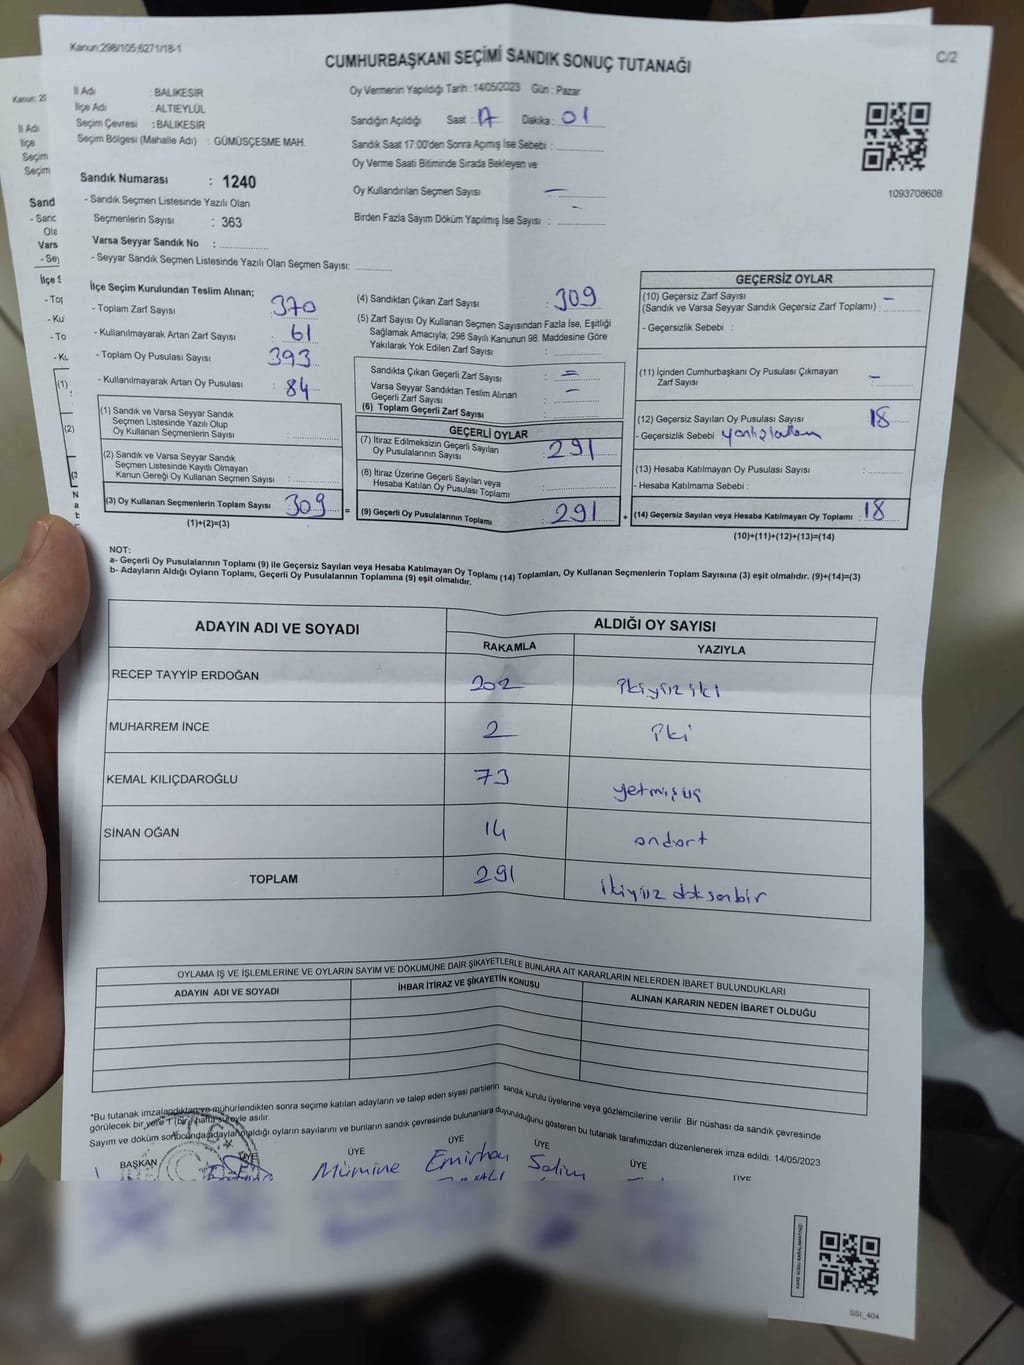 Kanun:298/105;6271/18-1
CUMHURBAŞKANI SEÇİMİ SANDIK SONUÇ TUTANAĞI
C/2
İl Adı : BALIKESİR
İlçe Adı : ALTIEYLÜL
Seçim Çevresi : BALIKESİR
Seçim Bölgesi (Mahalle Adı) : GÜMÜŞÇEŞME MAH.
Sandık Numarası : 1240
- Sandık Seçmen Listesinde Yazılı Olan
Seçmenlerin Sayısı : 363
Varsa Seyyar Sandık No :
- Seyyar Sandık Seçmen Listesinde Yazılı Olan Seçmen Sayısı:
Oy Vermenin Yapıldığı Tarih : 14/05/2023 Gün : Pazar
Sandığın Açıldığı Saat : 17 Dakika : 01
Sandık Saat 17:00'den Sonra Açımış İse Sebebi :
Oy Verme Saati Bitiminde Sırada Bekleyen ve
Oy Kullandırılan Seçmen Sayısı —
Birden Fazla Sayım Döküm Yapılmış İse Sayısı : -
1093708608
İlçe Seçim Kurulundan Teslim Alınan;
- Toplam Zarf Sayısı : 370
- Kullanılmayarak Artan Zarf Sayısı : 61
- Toplam Oy Pusulası Sayısı 393
- Kullanılmayarak Artan Oy Pusulası : 84
(1) Sandık ve Varsa Seyyar Sandık
Seçmen Listesinde Yazılı Olup
Oy Kullanan Seçmenlerin Sayısı :
(2) Sandık ve Varsa Seyyar Sandık
Seçmen Listesinde Kayıtlı Olmayan
Kanun Gereği Oy Kullanan Seçmen Sayısı :
(3) Oy Kullanan Seçmenlerin Toplam Sayısı 309 =
(1)+(2)=(3)
(4) Sandıktan Çıkan Zarf Sayısı : 309
(5) Zarf Sayısı Oy Kullanan Seçmen Sayısından Fazla İse, Eşitliği
Sağlamak Amacıyla; 298 Sayılı Kanunun 98. Maddesine Göre
Yakılarak Yok Edilen Zarf Sayısı :
Sandıkta Çıkan Geçerli Zarf Sayısı : =
Varsa Seyyar Sandıktan Teslim Alınan
Geçerli Zarf Sayısı : —
(6) Toplam Geçerli Zarf Sayısı :
GEÇERLİ OYLAR
(7) İtiraz Edilmeksizin Geçerli Sayılan
Oy Pusulalarının Sayısı : 291
(8) İtiraz Üzerine Geçerli Sayılan veya
Hesaba Katılan Oy Pusulası Toplamı :
(9) Geçerli Oy Pusulalarının Toplamı : 291 +
GEÇERSİZ OYLAR
(10) Geçersiz Zarf Sayısı
(Sandık ve Varsa Seyyar Sandık Geçersiz Zarf Toplamı) : —
- Geçersizlik Sebebi :
(11) İçinden Cumhurbaşkanı Oy Pusulası Çıkmayan
Zarf Sayısı : —
(12) Geçersiz Sayılan Oy Pusulası Sayısı : 18
- Geçersizlik Sebebi
(13) Hesaba Katılmayan Oy Pusulası Sayısı :
- Hesaba Katılmama Sebebi :
(14) Geçersiz Sayılan veya Hesaba Katılmayan Oy Toplamı : 18
(10)+(11)+(12)+(13)=(14)
NOT:
a- Geçerli Oy Pusulalarının Toplamı (9) ile Geçersiz Sayılan veya Hesaba Katılmayan Oy Toplamı (14) Toplamları, Oy Kullanan Seçmenlerin Toplam Sayısına (3) eşit olmalıdır. (9)+(14)=(3)
b- Adayların Aldığı Oyların Toplamı, Geçerli Oy Pusulalarının Toplamına (9) eşit olmalıdır.
ADAYIN ADI VE SOYADI
ALDIĞI OY SAYISI
RAKAMLA YAZIYLA
RECEP TAYYİP ERDOĞAN 202 ikiyüziki
MUHARREM İNCE 2 iki
KEMAL KILIÇDAROĞLU 73 yetmişüç
SİNAN OĞAN 14 ondört
TOPLAM 291 ikiyüz doksanbir
OYLAMA İŞ VE İŞLEMLERİNE VE OYLARIN SAYIM VE DÖKÜMÜNE DAİR ŞİKAYETLERLE BUNLARA AİT KARARLARIN NELERDEN İBARET BULUNDUKLARI
ADAYIN ADI VE SOYADI
İHBAR İTİRAZ VE ŞİKAYETİN KONUSU
ALINAN KARARIN NEDEN İBARET OLDUĞU
*Bu tutanak imzalandıktan ve mühürlendikten sonra seçime katılan adayların ve talep eden siyasi partilerin sandık kurulu üyelerine veya gözlemcilerine verilir. Bir nüshası da sandık çevresinde
görülecek bir yere 1 (bir) hafta süreyle asılır.
Sayım ve döküm sonucunda adayların aldığı oyların sayılarını ve bunların sandık çevresinde bulunanlara duyurulduğunu gösteren bu tutanak tarafımızdan düzenlenerek imza edildi. 14/05/2023
BAŞKAN ÜYE ÜYE ÜYE ÜYE ÜYE ÜYE
Mümine Emirhan Salim
SSI_404